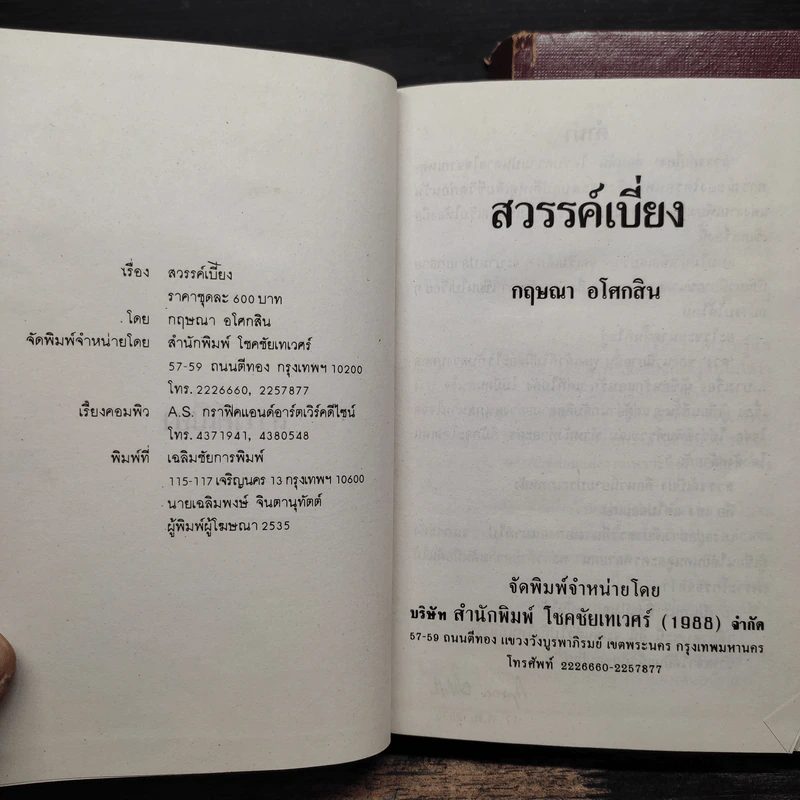 เรื่อง สวรรค์เบี่ยง
ราคาชุดละ 600 บาท
โดย กฤษณา อโศกสิน
จัดพิมพ์จำหน่ายโดย สำนักพิมพ์ โชคชัยเทเวศร์
57-59 ถนนตีทอง กรุงเทพฯ 10200
โทร. 2226660, 2257877
เรียงคอมพิว A.S. กราฟิคแอนด์อาร์ตเวิร์คดีไซน์
โทร. 4371941, 4380548
พิมพ์ที่ เฉลิมชัยการพิมพ์
115-117 เจริญนคร 13 กรุงเทพฯ 10600
นายเฉลิมพงษ์ จินตานุทัตต์
ผู้พิมพ์ผู้โฆษณา 2535
สวรรค์เบี่ยง
กฤษณา อโศกสิน
จัดพิมพ์จำหน่ายโดย
บริษัท สำนักพิมพ์ โชคชัยเทเวศร์ (1988) จำกัด
57-59 ถนนตีทอง แขวงวังบูรพาภิรมย์ เขตพระนคร กรุงเทพมหานคร
โทรศัพท์ 2226660-2257877